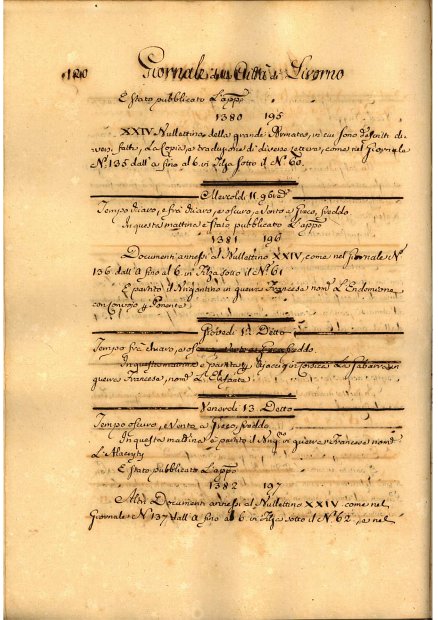 180 Giornale di Città di Livorno
È stato pubblicato L'app.º
1380 195
XXIV Bullettino della grande Armata, in cui sono descritti di-
versi fatti, La Copia, e traduzione di diverse Lettere, come nel Giornale
N.º 135 dall'a fino al 6. in Filza sotto il N.º 60.
Mercoldì 11. 9bre d.º
Tempo chiaro, e frà chiaro, e oscuro, e Vento a Greco, freddo
In questa mattina è stato pubblicato L'app.º
1381 196
Documenti annessi al Bullettino XXIV, come nel Giornale N.º
136 dall'a fino al 6 in Filza sotto il N.º 61
È partito il Brigantino in guerra Francese nom.º L'Endimione
con Convoio p. Ponente
Giovedì 12. Detto
Tempo frà chiaro, e oscuro, Vento a Greco freddo.
In questa mattina è partita p. Ajaccio in Corsica La in
guerra Francese, nom.
Venerdì 13. Detto
Tempo oscuro, e Vento a Greco, freddo.
In questa mattina è partito il Brig.º in guerra Francese nom.º
È stato pubblicato L'app.º
1382 197
Altri Documenti annessi al Bullettino XXIV come nel
Giornale N.º 137 dall'a fino al 6 in Filza sotto il N.º 62, e nel